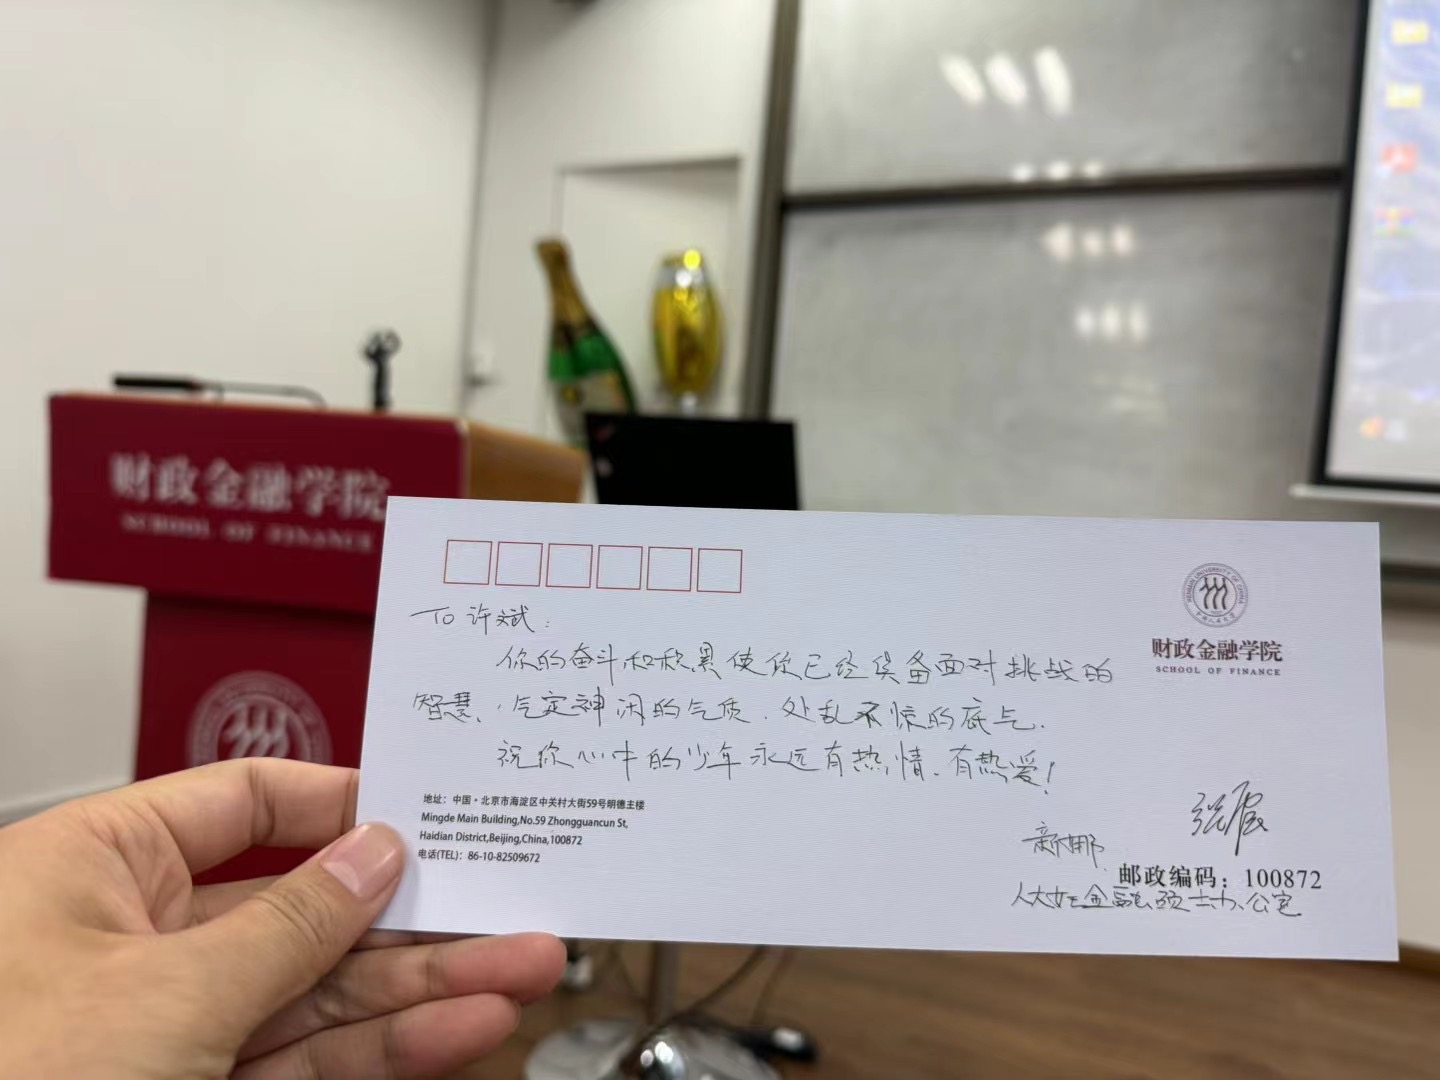 财政金融学院
SCHOOL OF FINANCE
RENMIN UNIVERSITY OF CHINA
中国人民大学
财政金融学院
SCHOOL OF FINANCE
TO 许斌:
你的奋斗和积累使你已经具备面对挑战的
智慧、气定神闲的气质、处乱不惊的底气.
祝你心中的少年永远有热情、有热爱!
地址：中国·北京市海淀区中关村大街59号明德主楼
Mingde Main Building,No.59 Zhongguancun St,
Haidian District,Beijing,China,100872
电话(TEL)：86-10-82509672
邮政编码：100872
人大 金融硕士办公室